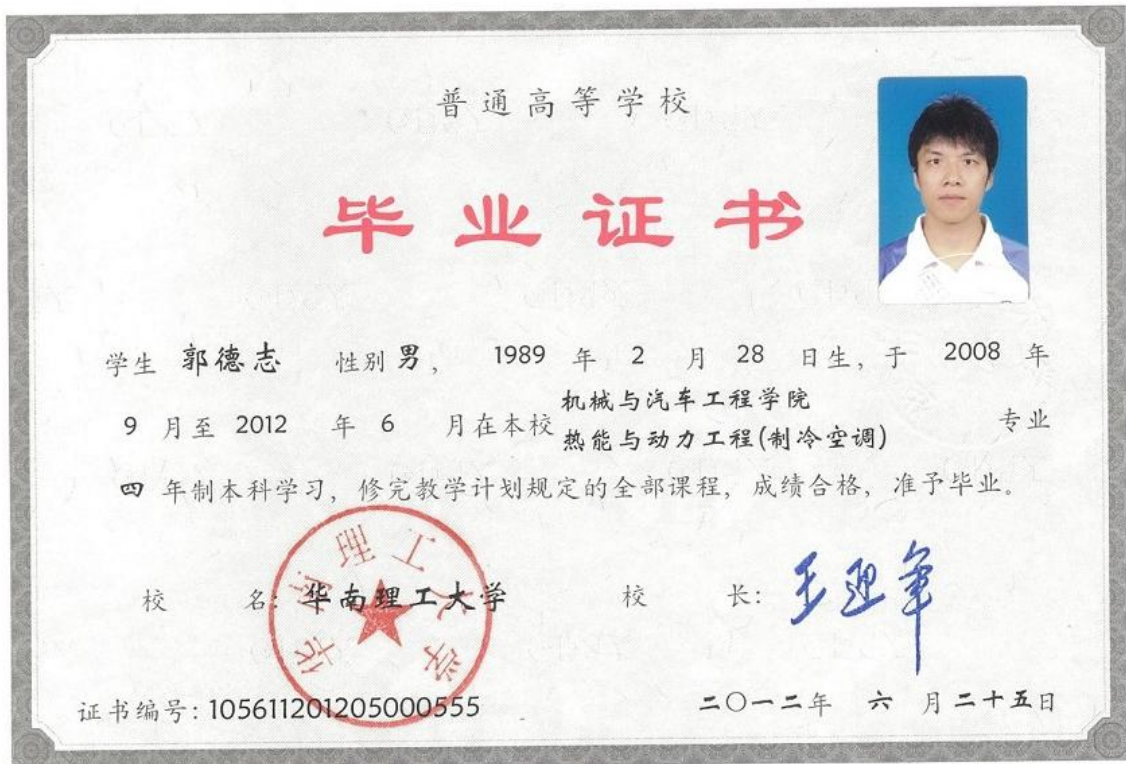 普通高等学校
毕业证书
学生 郭德志 性别 男， 1989 年 2 月 28 日生，于 2008 年
9 月至 2012 年 6 月在本校 机械与汽车工程学院
热能与动力工程(制冷空调) 专业
四 年制本科学习，修完教学计划规定的全部课程，成绩合格，准予毕业。
校 名：华南理工大学 校 长：
华南理工大学
证书编号：105611201205000555 二〇一二年 六 月二十五日